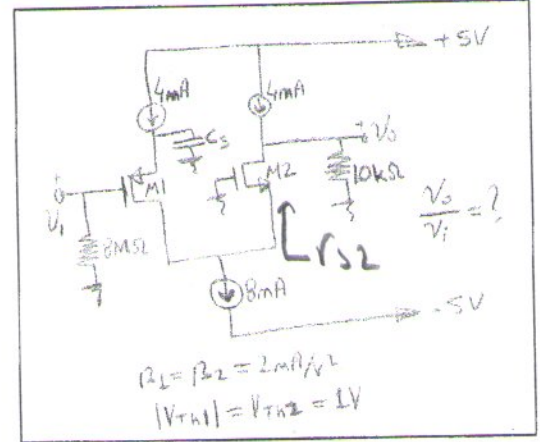 +5V
4mA
4mA
Cs
Vo
M1
M2
10kΩ
Vi
8MΩ
rs2
Vo/Vi = ?
8mA
-5V
β1 = β2 = 2mA/V²
|VTh1| = VTh2 = 1V